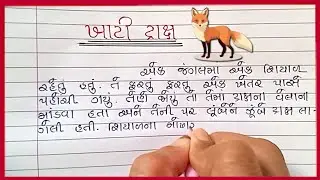 ખાટી દ્રાક્ષ
એક જંગલમાં એક શિયાળ
રહેતું હતું. તે ફરતું ફરતું એક ખેતર પાસે
પહોંચી ગયું. તેણે જોયું તો તેમાં દ્રાક્ષના વેલાના
માંડવા હતા અને તેની પર લૂમેને લૂમે દ્રાક્ષ લા-
ગેલી હતી. શિયાળના મોંમાં